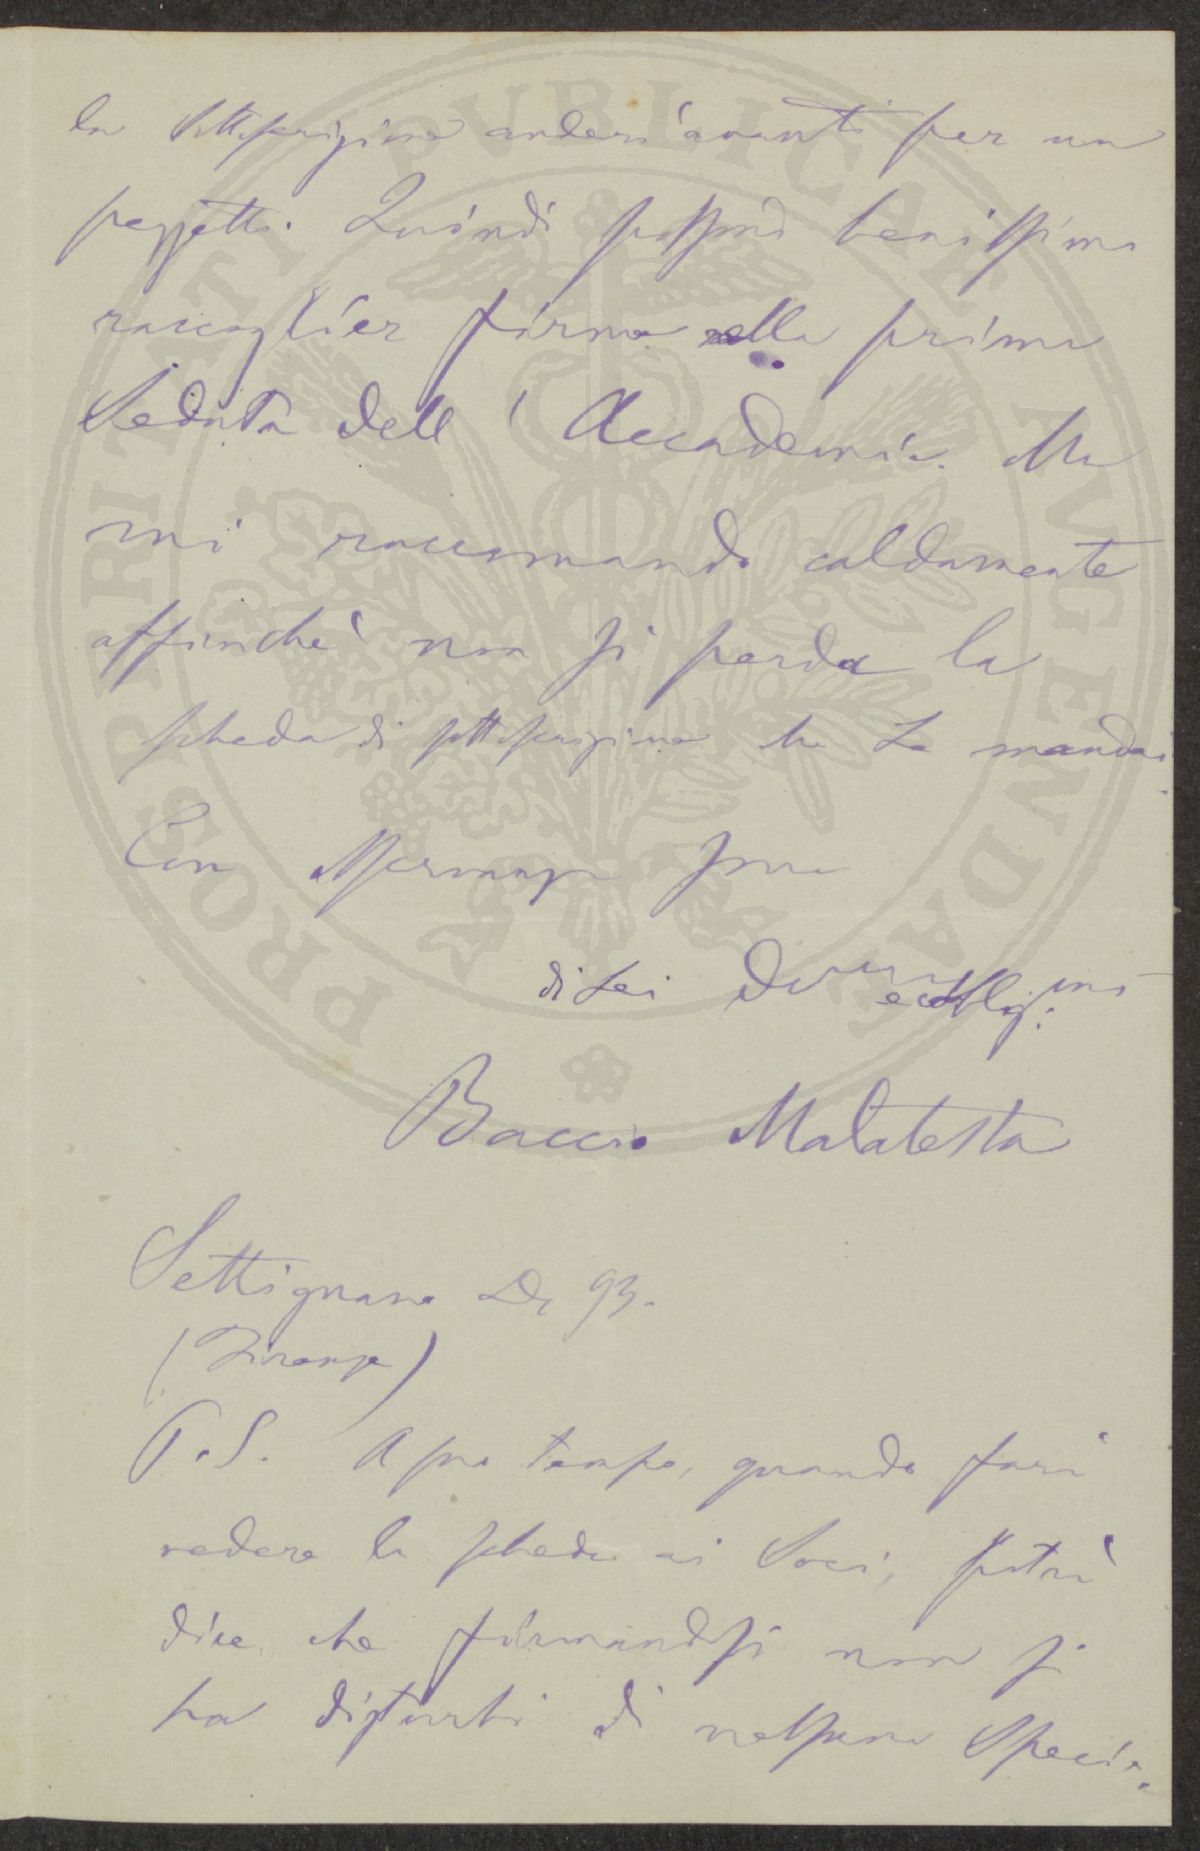 la sottoscrizione anderà avanti per un
pezzetto. Quindi potrà benissimo
raccoglier firme alla prima
Seduta dell'Accademia. Ma
mi raccomando caldamente
affinché non si perda la
scheda di sottoscrizione che Le mandai.
Con osservanza sono
di Lei Dev.mo ed Obblig.mo
Baccio Malatesta
Settignano D. 93.
(Firenze)
P.S. A suo tempo, quando farà
vedere la scheda ai Soci, potrà
dire che firmandosi non si
ha disturbi di nessuna specie.
PROSPERITATI PVBLICAE AVGENDAE